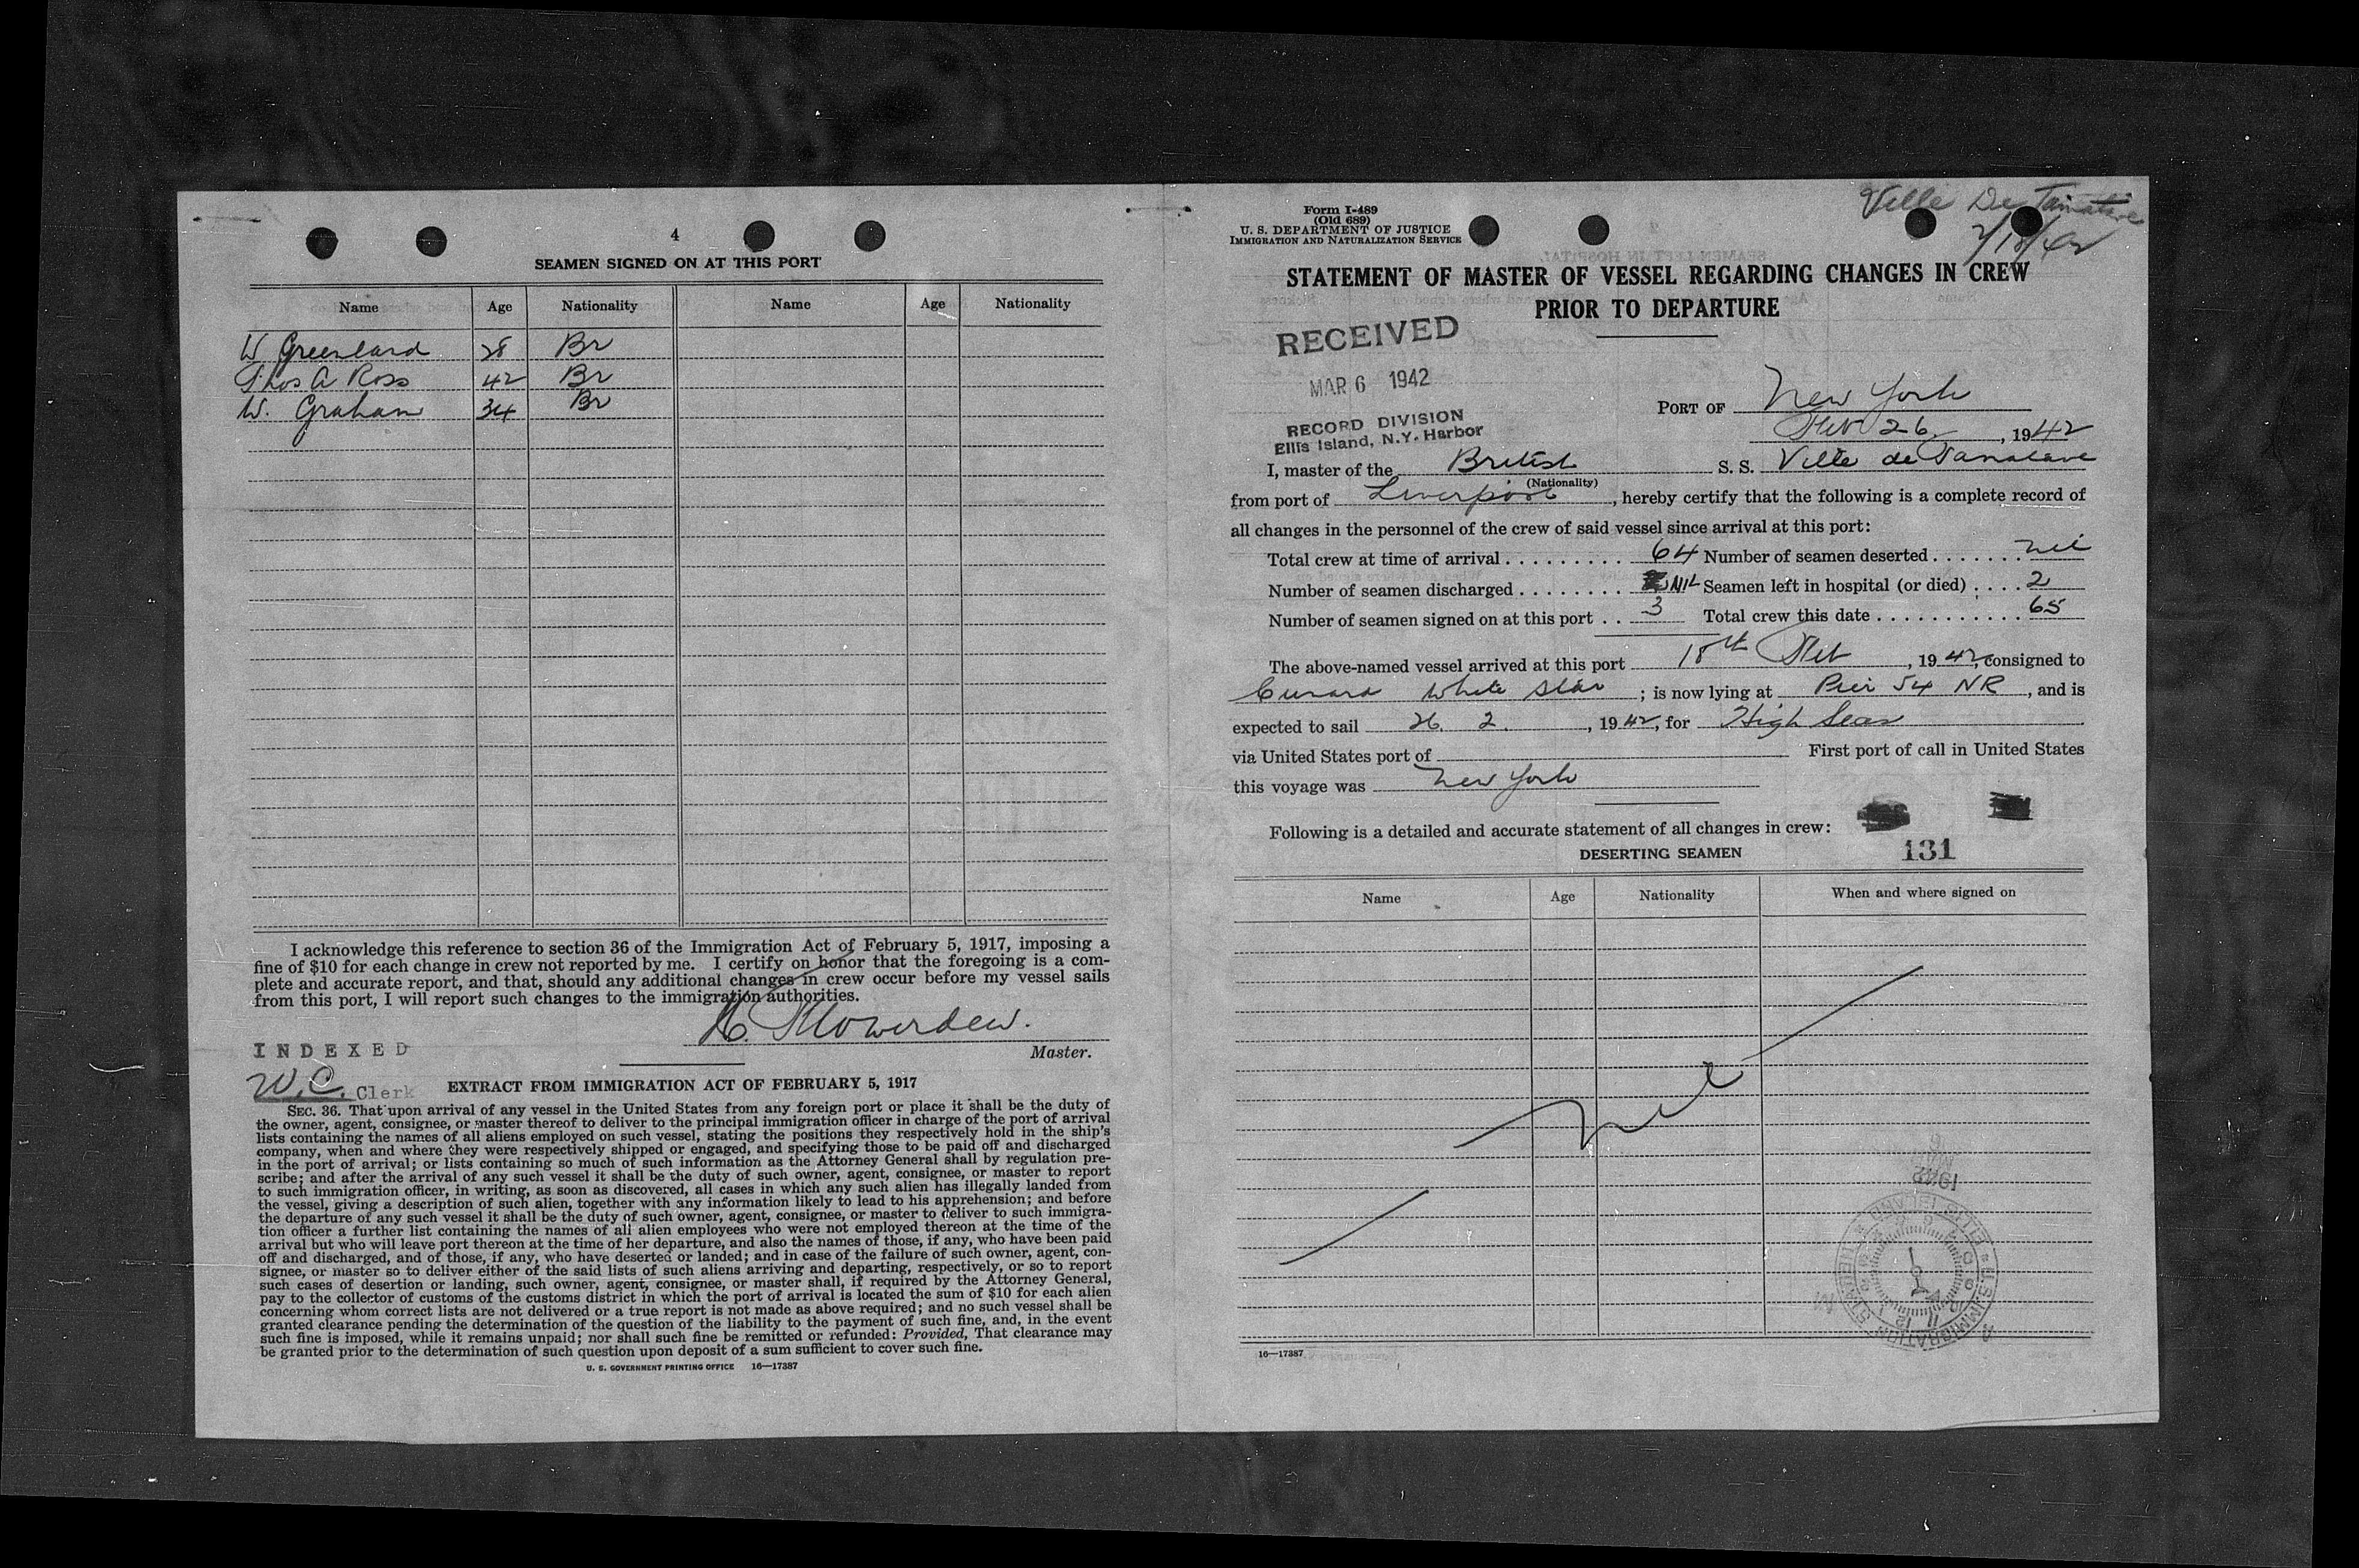 4
SEAMEN SIGNED ON AT THIS PORT
Name Age Nationality Name Age Nationality
W Greenland 28 Br
Thos A Ross 42 Br
W. Graham 34 Br
I acknowledge this reference to section 36 of the Immigration Act of February 5, 1917, imposing a
fine of $10 for each change in crew not reported by me. I certify on honor that the foregoing is a com-
plete and accurate report, and that, should any additional changes in crew occur before my vessel sails
from this port, I will report such changes to the immigration authorities.
H. Flowerdew.
Master.
INDEXED
W.C. Clerk
EXTRACT FROM IMMIGRATION ACT OF FEBRUARY 5, 1917
SEC. 36. That upon arrival of any vessel in the United States from any foreign port or place it shall be the duty of
the owner, agent, consignee, or master thereof to deliver to the principal immigration officer in charge of the port of arrival
lists containing the names of all aliens employed on such vessel, stating the positions they respectively hold in the ship's
company, when and where they were respectively shipped or engaged, and specifying those to be paid off and discharged
in the port of arrival; or lists containing so much of such information as the Attorney General shall by regulation pre-
scribe; and after the arrival of any such vessel it shall be the duty of such owner, agent, consignee, or master to report
to such immigration officer, in writing, as soon as discovered, all cases in which any such alien has illegally landed from
the vessel, giving a description of such alien, together with any information likely to lead to his apprehension; and before
the departure of any such vessel it shall be the duty of such owner, agent, consignee, or master to deliver to such immigra-
tion officer a further list containing the names of all alien employees who were not employed thereon at the time of the
arrival but who will leave port thereon at the time of her departure, and also the names of those, if any, who have been paid
off and discharged, and of those, if any, who have deserted or landed; and in case of the failure of such owner, agent, con-
signee, or master so to deliver either of the said lists of such aliens arriving and departing, respectively, or so to report
such cases of desertion or landing, such owner, agent, consignee, or master shall, if required by the Attorney General,
pay to the collector of customs of the customs district in which the port of arrival is located the sum of $10 for each alien
concerning whom correct lists are not delivered or a true report is not made as above required; and no such vessel shall be
granted clearance pending the determination of the question of the liability to the payment of such fine, and, in the event
such fine is imposed, while it remains unpaid; nor shall such fine be remitted or refunded: Provided, That clearance may
be granted prior to the determination of such question upon deposit of a sum sufficient to cover such fine.
U. S. GOVERNMENT PRINTING OFFICE 16—17387
Ville De Tamatave
2/18/42
Form I-489
(Old 689)
U. S. DEPARTMENT OF JUSTICE
IMMIGRATION AND NATURALIZATION SERVICE
STATEMENT OF MASTER OF VESSEL REGARDING CHANGES IN CREW
PRIOR TO DEPARTURE
RECEIVED
MAR 6 1942
RECORD DIVISION
Ellis Island, N.Y. Harbor
PORT OF New York
Feb 26, 1942
I, master of the British S. S. Ville de Tamatave
(Nationality)
from port of Liverpool, hereby certify that the following is a complete record of
all changes in the personnel of the crew of said vessel since arrival at this port:
Total crew at time of arrival 64 Number of seamen deserted nil
Number of seamen discharged NIL Seamen left in hospital (or died) 2
Number of seamen signed on at this port 3 Total crew this date 65
The above-named vessel arrived at this port 18th Feb, 1942, consigned to
Cunard White Star; is now lying at Pier 54 NR, and is
expected to sail 26. 2., 1942, for High Seas
via United States port of First port of call in United States
this voyage was New York
Following is a detailed and accurate statement of all changes in crew:
131
DESERTING SEAMEN
Name Age Nationality When and where signed on
Nil
1942
U.S. IMMIGRATION
16—17387